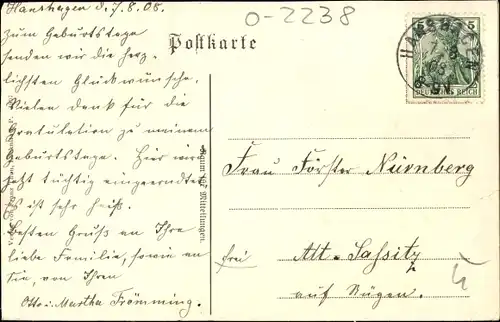 Hanshagen d. 7.8.08.
O-2238
Zum Geburtstage
senden wir die herz-
lichsten Glückwünsche,
Vielen Dank für die
Gratulation zu meinem
Geburtstage. Hier wird
jetzt tüchtig eingeerndtet
Es ist sehr heiß.
Besten Gruß an Ihre
liebe Familie, sowie an
Sie, von Ihren
Otto u. Martha Frömming.
Postkarte
5 5
DEUTSCHES REICH
Raum für Mitteilungen.
Frau Förster Nürnberg
frei
Alt-Sassitz
auf Rügen.